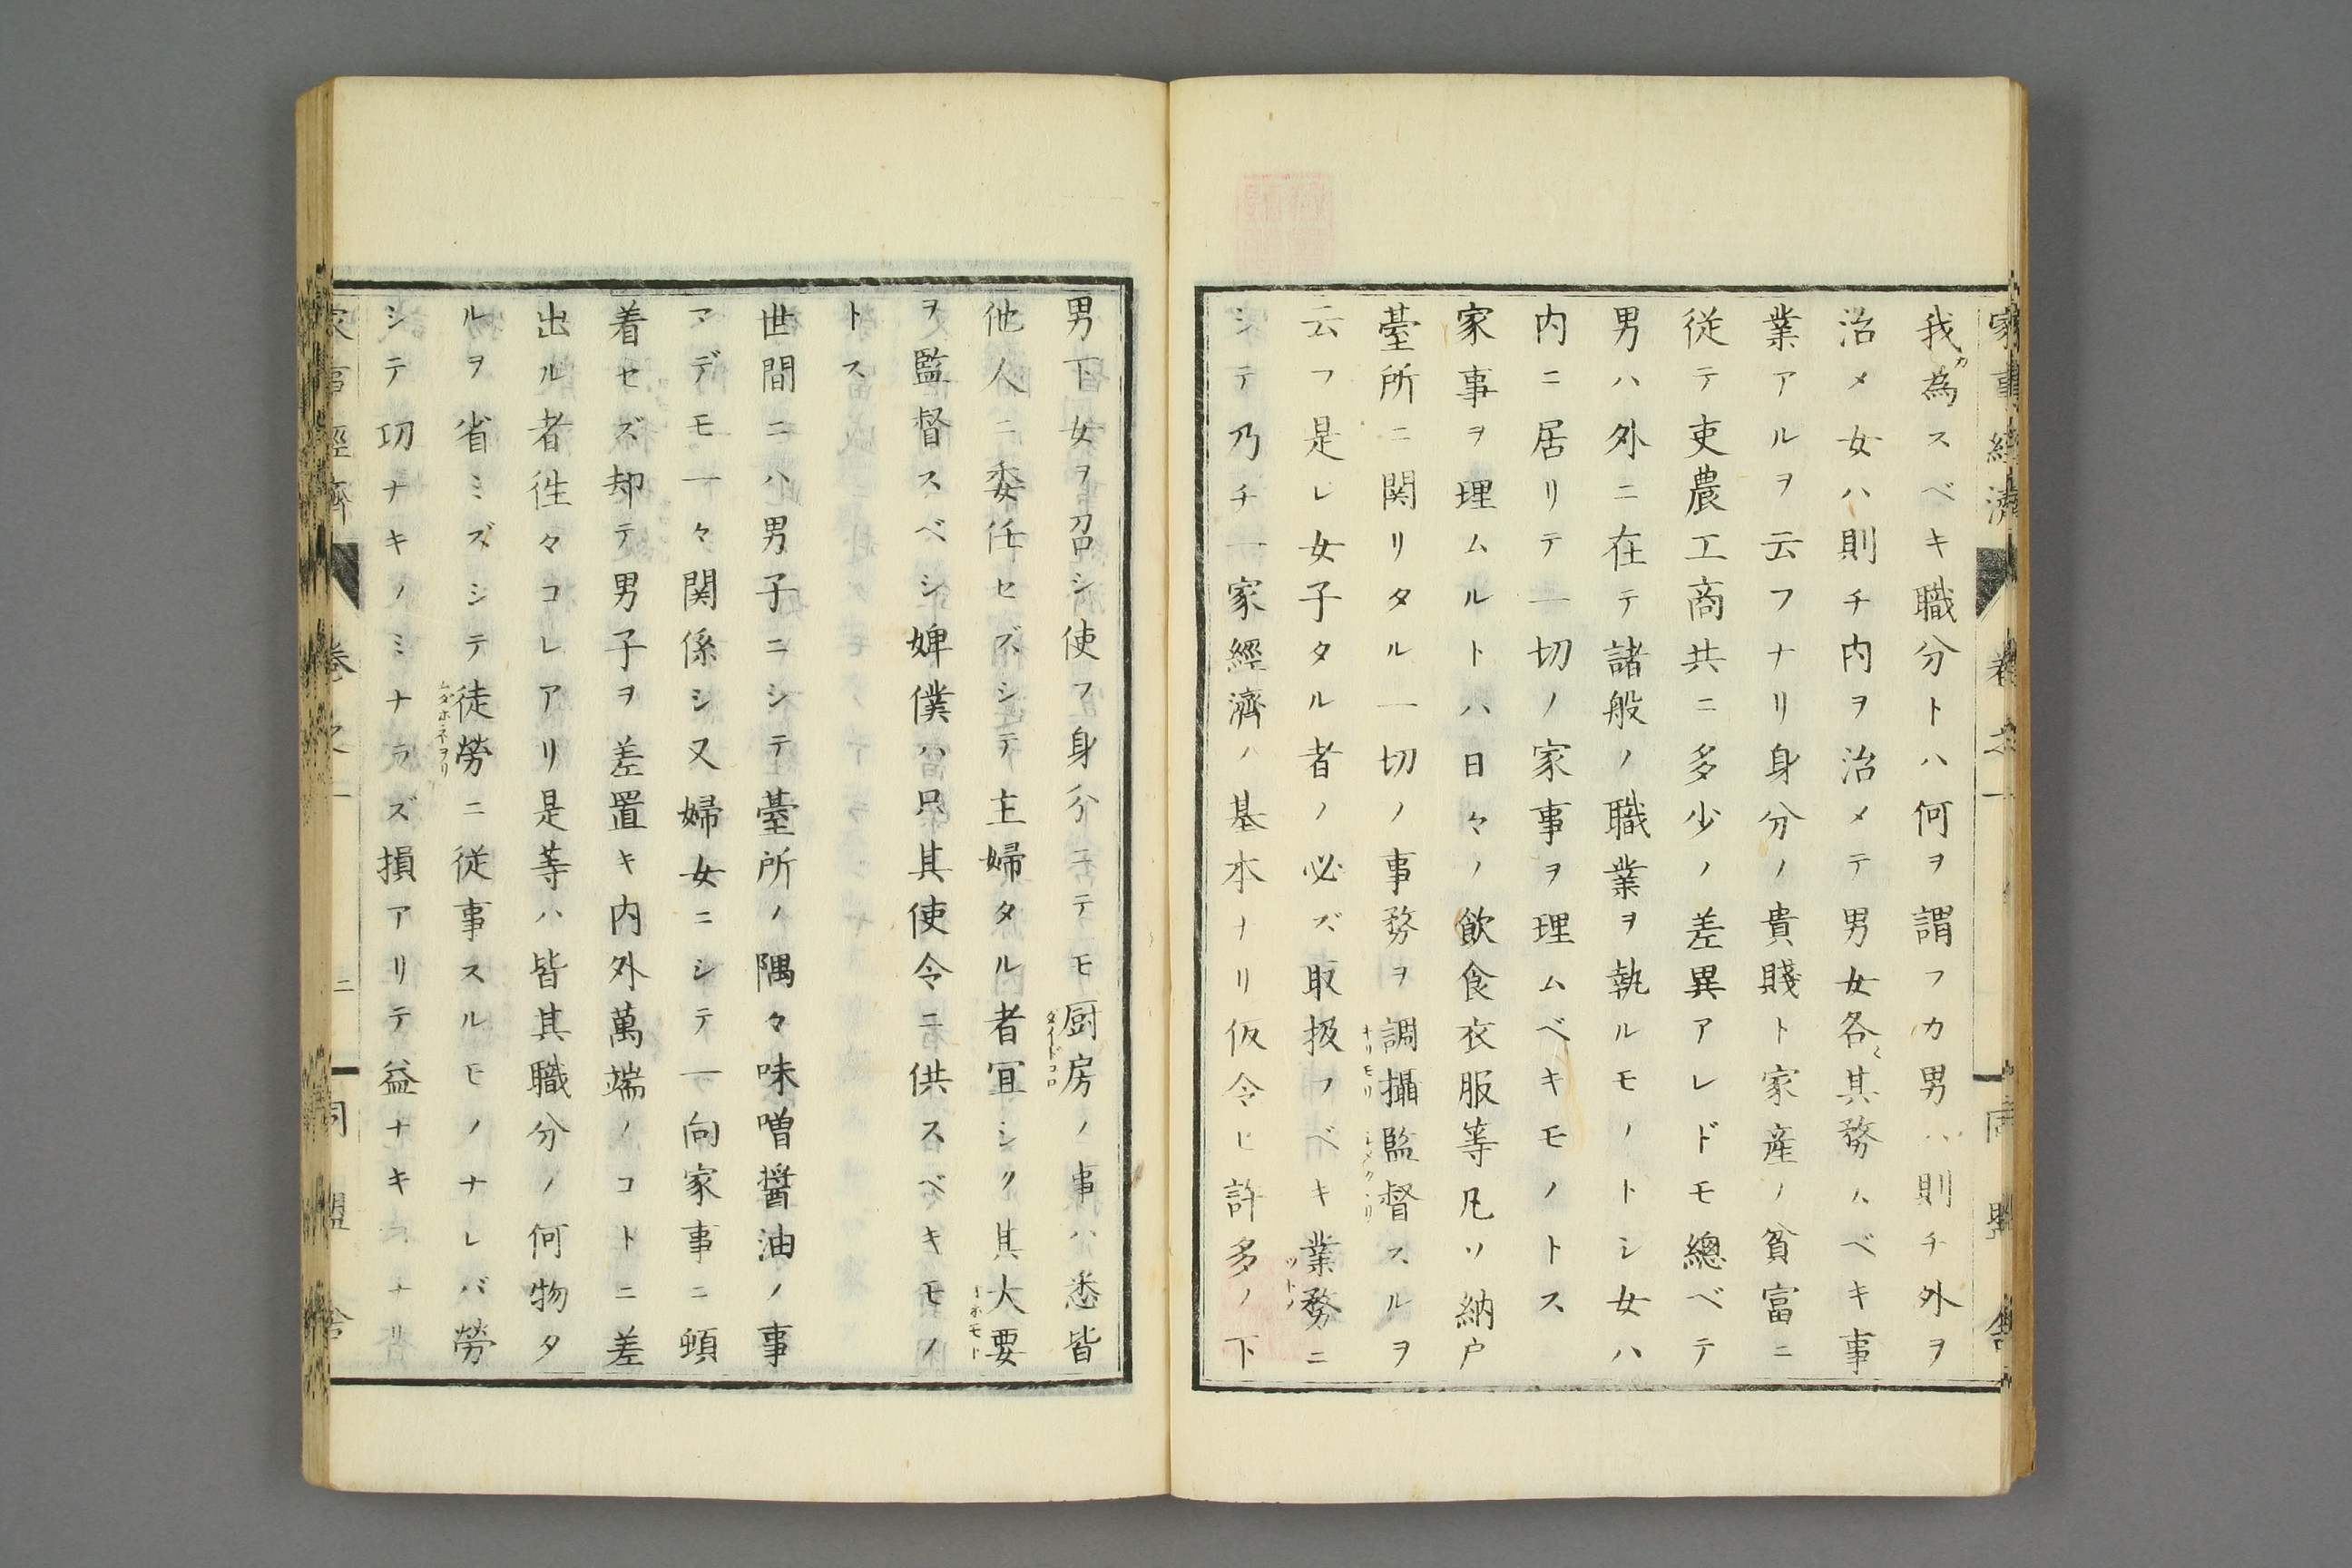 家事經濟 卷之一 同盟舍
我為スベキ職分トハ何ヲ謂フカ男ハ則チ外ヲ
治メ女ハ則チ内ヲ治メテ男女各〻其務ムベキ事
業アルヲ云フナリ身分ノ貴賤ト家産ノ貧富ニ
従テ吏農工商共ニ多少ノ差異アレドモ總ベテ
男ハ外ニ在テ諸般ノ職業ヲ執ルモノトシ女ハ
内ニ居リテ一切ノ家事ヲ理ムベキモノトス
家事ヲ理ムルトハ日々ノ飲食衣服等凡ソ納戸
臺所ニ関リタル一切ノ事務ヲ調攝監督スルヲ
云フ是レ女子タル者ノ必ズ取扱フベキ業務ニ
シテ乃チ一家經濟ノ基本ナリ仮令ヒ許多ノ下
男下女ヲ召シ使フ身分ニテモ厨房ノ事ハ悉皆
他人ニ委任セズシテ主婦タル者宜シク其大要
ヲ監督スベシ婢僕ハ只其使令ニ供スベキモノ
トス
世間ニハ男子ニシテ臺所ノ隅々味噌醤油ノ事
マデモ一々関係シ又婦女ニシテ一向家事ニ頓
着セズ却テ男子ヲ差置キ内外萬端ノコトニ差
出ル者徃々コレアリ是等ハ皆其職分ノ何物タ
ルヲ省ミズシテ徒勞ニ従事スルモノナレバ勞
シテ功ナキノミナラズ損アリテ益ナキ
家事經濟 卷之一 二 同盟舍